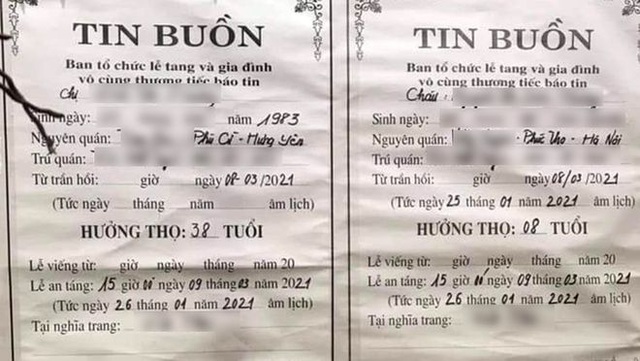 TIN BUỒN
Ban tổ chức lễ tang và gia đình
vô cùng thương tiếc báo tin
Chị
Sinh ngày: năm 1983
Nguyên quán: Phù Cừ - Hưng Yên
Trú quán:
Từ trần hồi: giờ ngày 08-03/2021
(Tức ngày tháng năm âm lịch)
HƯỞNG THỌ: 38 TUỔI
Lễ viếng từ: giờ ngày tháng năm 20
Lễ an táng: 15 giờ 00 ngày 09 tháng 03 năm 2021
(Tức ngày 26 tháng 01 năm 2021 âm lịch)
Tại nghĩa trang:
TIN BUỒN
Ban tổ chức lễ tang và gia đình
vô cùng thương tiếc báo tin
Cháu
Sinh ngày:
Nguyên quán: - Phúc Thọ - Hà Nội
Trú quán:
Từ trần hồi: giờ ngày 08/03/2021
(Tức ngày 25 tháng 01 năm 2021 âm lịch)
HƯỞNG THỌ: 08 TUỔI
Lễ viếng từ: giờ ngày tháng năm 20
Lễ an táng: 15 giờ 00 ngày 09 tháng 03 năm 2021
(Tức ngày 26 tháng 01 năm 2021 âm lịch)
Tại nghĩa trang: